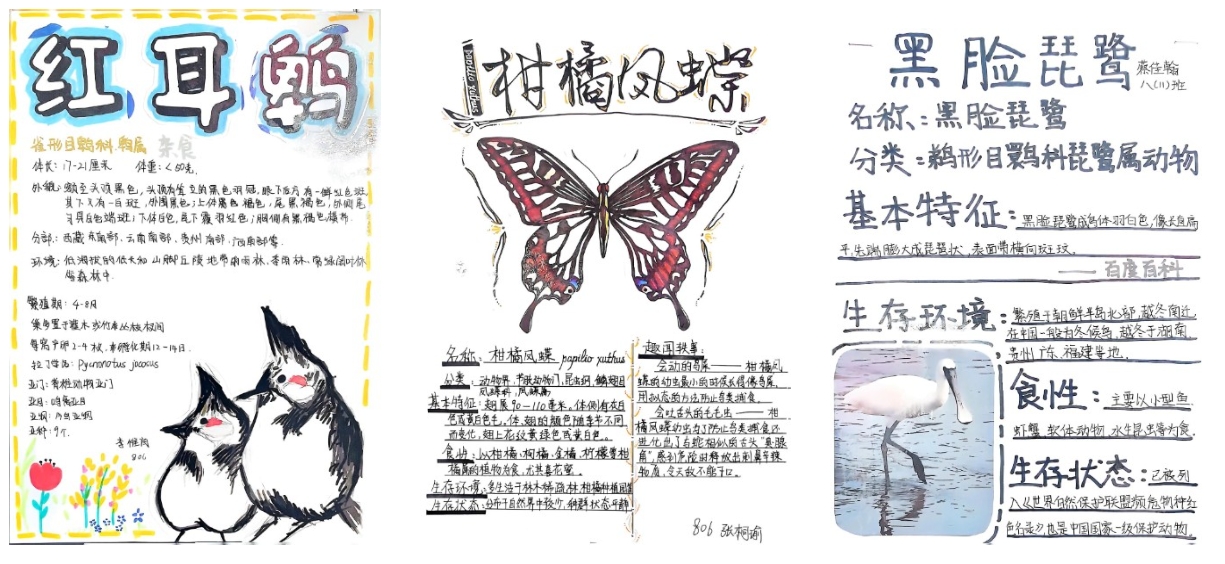 红耳鹎
雀形目鹎科.鹎属 杂食
体长:17-21厘米 体重:<50克.
外貌:额至头顶黑色,头顶有耸立的黑色羽冠,眼下后方有一鲜红色斑
其下又有一白斑,外周黑色;上体
尾黑褐色,外侧尾
羽具白色端斑;下体白色,尾下覆羽红色;胸侧有黑褐色横带.
分部:西藏东南部、云南南部、贵州南部、广西南部等.
环境:
雨林、季雨林、常绿阔叶林
等森林中.
繁殖期:4-8月
巢多置于灌木
每窝产卵2-4枚,
孵化期12-14日.
拉丁学名:Pycnonotus jocosus
亚门:脊椎动物亚门
亚目:鸣禽亚目
亚纲:今鸟亚纲
亚种:9个.
806
柑橘凤蝶
名称:柑橘凤蝶 papilio xuthus
分类:动物界,节肢动物门,昆虫纲,鳞翅目
凤蝶科,凤蝶属
基本特征:翅展90—110毫米。体侧有灰白
色或黄白色毛,体、翅的颜色随季节不同
而变化,翅上花纹黄绿色或黄白色。
食性:以柑橘、枸橘、金橘、柠檬等柑
橘属的植物为食,尤其喜花蜜。
生存环境:多生活于林木稀疏林,柑橘种植园等
生存状态:分布于自然界中较少,种群状态平静
趣闻轶事:
会动的鸟屎——柑橘凤
蝶的幼虫最小的时候长得像鸟屎,
用拟态的方法防止鸟类捕食。
会吐舌头的毛毛虫——柑
橘凤蝶幼虫为了防止鸟类捕食还
进化出了与蛇相似的舌头“臭腺
角”,感到危险时释放出刺鼻辛辣
物质,令天敌不能下口。
806 张桐瑜
黑脸琵鹭
八(11)班
名称:黑脸琵鹭
分类:鹈形目鹮科琵鹭属动物
基本特征:黑脸琵鹭成鸟体羽白色,像长且扁
平,先端膨大成琵琶状,表面带横向斑纹.
——百度百科
生存环境:繁殖于朝鲜半岛北部,越冬南迁.
在中国一般为冬候鸟,越冬于湖南,
贵州广东、福建等地.
食性:主要以小型鱼.
虾蟹.软体动物.水生昆虫等为食.
生存状态:已被列
入《世界自然保护联盟濒危物种红
色名录》,也是中国国家一级保护动物.